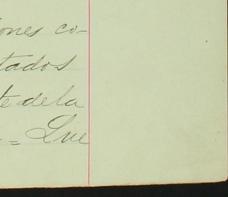 iones co-
tados
te de la
= Que